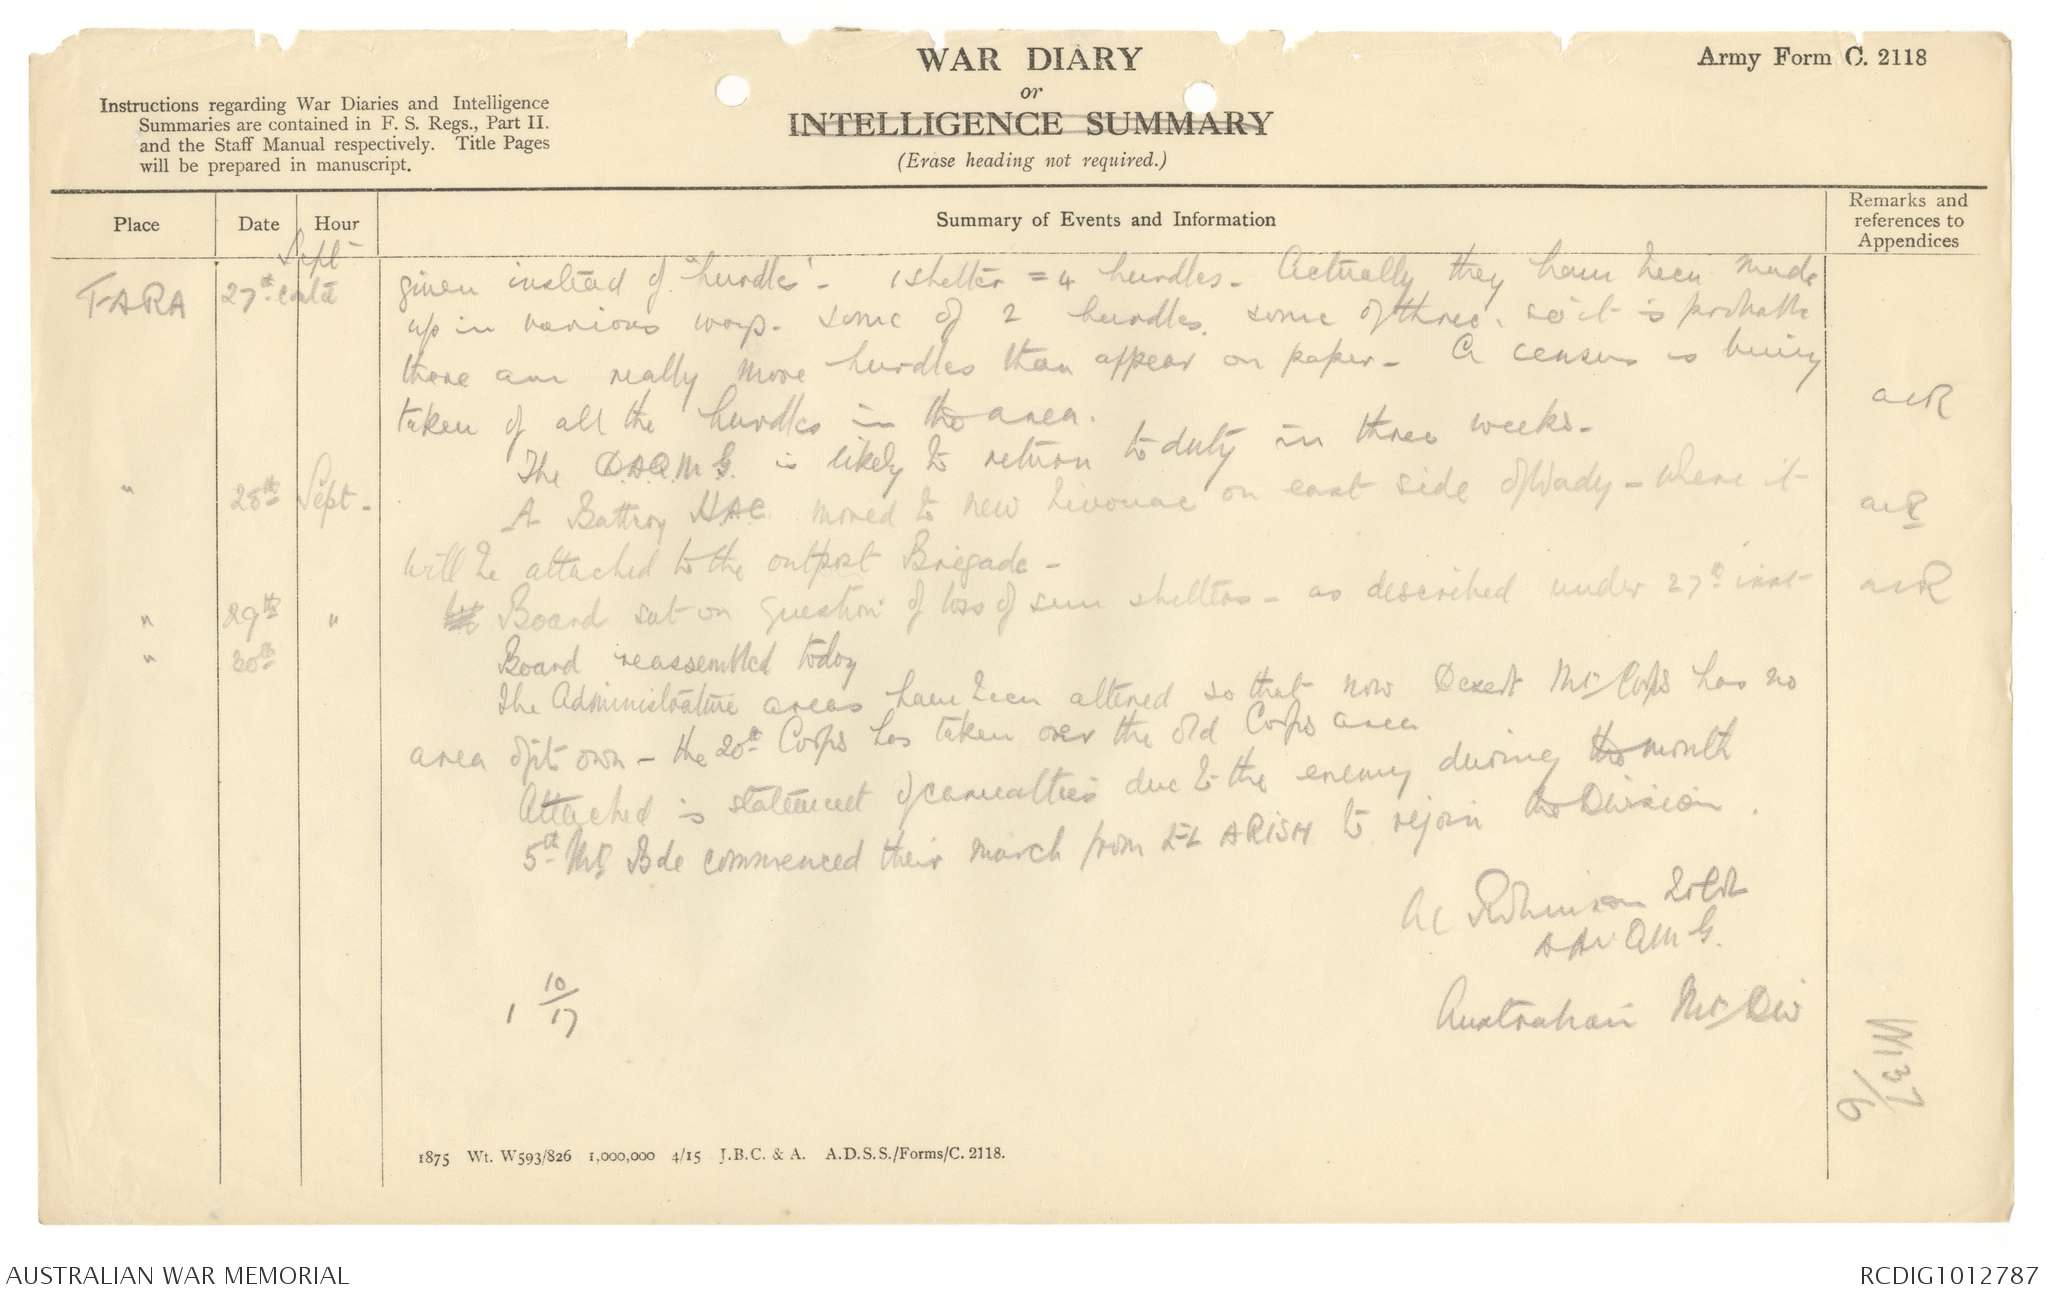 WAR DIARY
or
INTELLIGENCE SUMMARY
(Erase heading not required.)
Army Form C. 2118
Instructions regarding War Diaries and Intelligence
Summaries are contained in F. S. Regs., Part II.
and the Staff Manual respectively. Title Pages
will be prepared in manuscript.
Place Date Hour Summary of Events and Information Remarks and
references to
Appendices
Sept
FARA 27th contd given instead of "hurdles" - 1 shelter = 4 hurdles - Actually they have been made
up in various ways - some of 2 hurdles, some of three, so it is probable
there are really more hurdles than appear on paper - A census is being
taken of all the hurdles in the area. acR
The D.A.Q.M.G. is likely to return to duty in three weeks -
" 28th Sept - A Battery HAC moved to new bivouac on east side of Wady - where it acR
will be attached to the outpost Brigade -
" 29th " Board sat on question of loss of sun shelters - as described under 27th inst - acR
" 30th Board reassembled today
The Administrative areas have been altered so that now Desert Mtd Corps has no
area of it own - the 20th Corps has taken over the old Corps area
Attached is statement of casualties due to the enemy during the month
5th Mtd Bde commenced their march from EL ARISH to rejoin the Division.
AC Robinson Lt Col
AA & QMG.
Australian Mtd Div
1 10/17
1875 Wt. W593/826 1,000,000 4/15 J.B.C. & A. A.D.S.S./Forms/C. 2118.
AUSTRALIAN WAR MEMORIAL
RCDIG1012787